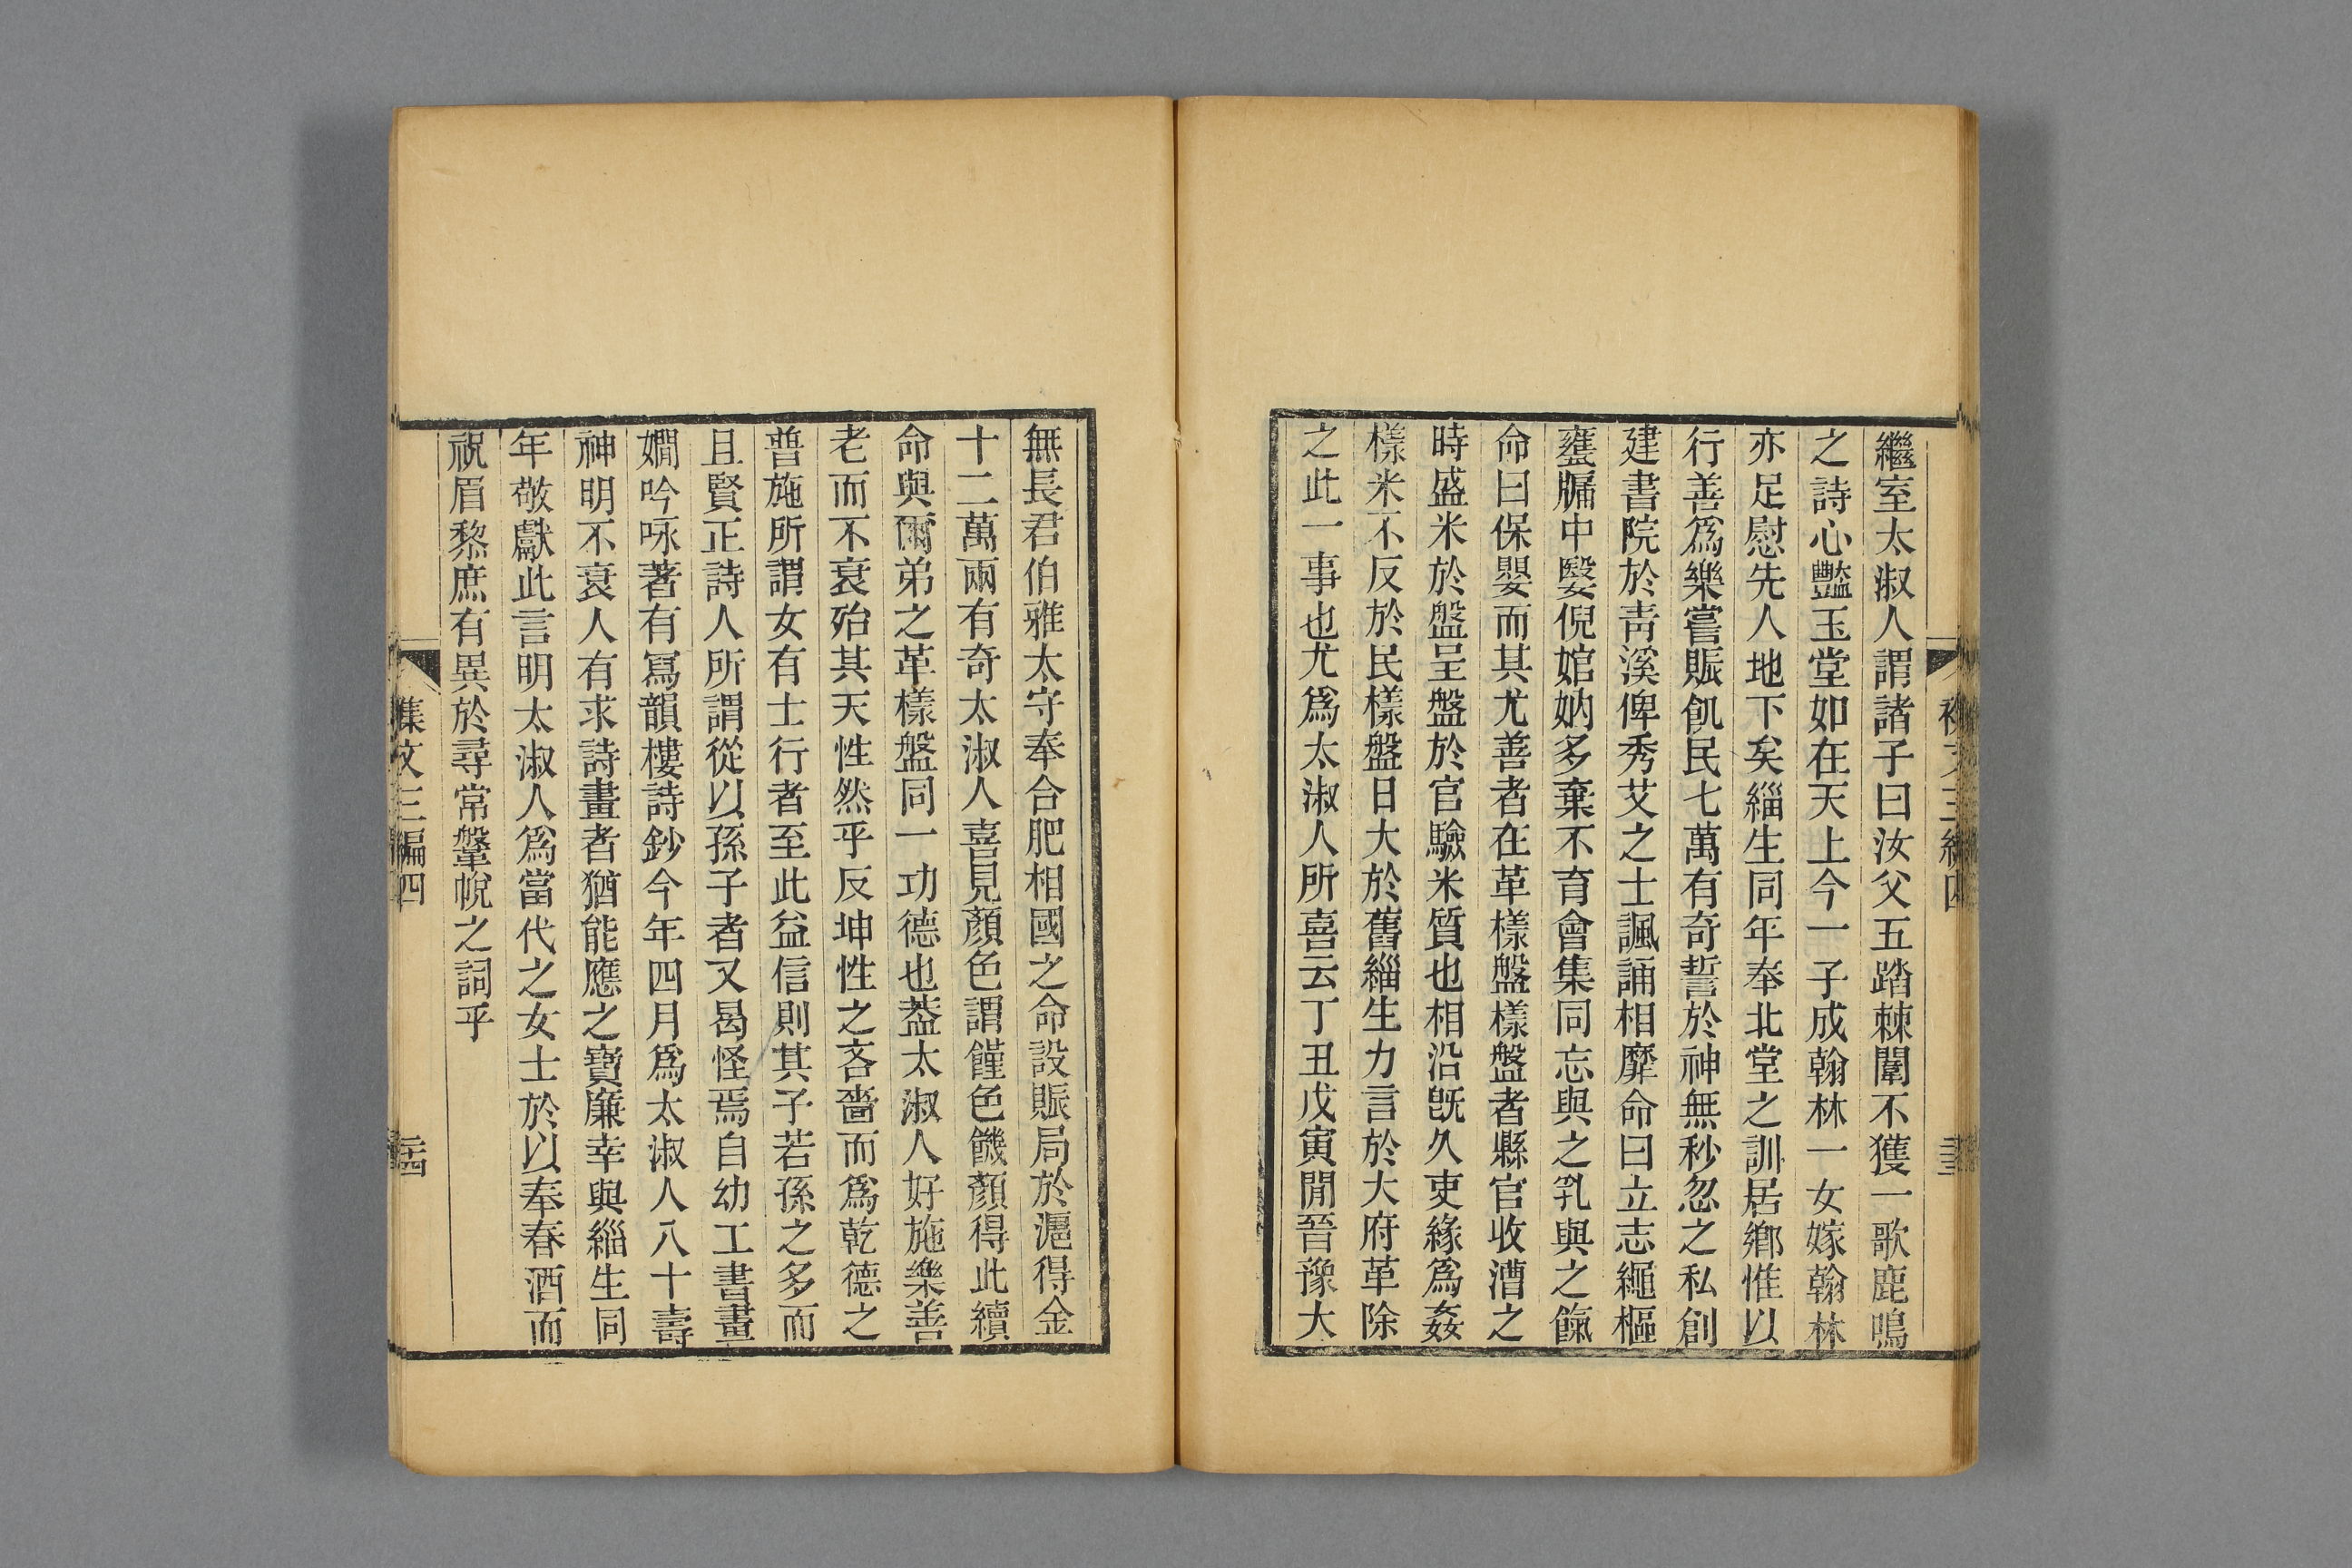 繼室太淑人謂諸子曰汝父五踏棘闈不獲一歌鹿鳴
之詩心豔玉堂如在天上今一子成翰林一女嫁翰林
亦足慰先人地下矣緇生同年奉北堂之訓居鄉惟以
行善爲樂嘗賑飢民七萬有奇誓於神無秒忽之私創
建書院於靑溪俾秀艾之士諷誦相靡命曰立志繩樞
甕牖中嫛倪婠妠多棄不育會集同忘與之乳與之餼
命曰保嬰而其尤善者在革樣盤樣盤者縣官收漕之
時盛米於盤呈盤於官驗米質也相沿旣久吏緣爲姦
樣米不反於民樣盤日大於舊緇生力言於大府革除
之此一事也尤爲太淑人所喜云丁丑戊寅閒晉豫大
無長君伯雅太守奉合肥相國之命設賑局於滬得金
十二萬兩有奇太淑人喜見顏色謂饉色饑顏得此續
命與爾弟之革樣盤同一功德也葢太淑人好施樂善
老而不衰殆其天性然乎反坤性之吝嗇而爲乾德之
普施所謂女有士行者至此益信則其子若孫之多而
且賢正詩人所謂從以孫子者又曷怪焉自幼工書畫
嫺吟咏著有寫韻樓詩鈔今年四月爲太淑人八十壽
神明不衰人有求詩畫者猶能應之寶廉幸與緇生同
年敬獻此言明太淑人爲當代之女士於以奉春酒而
祝眉黎庶有異於尋常鞶帨之詞乎
集文三編四